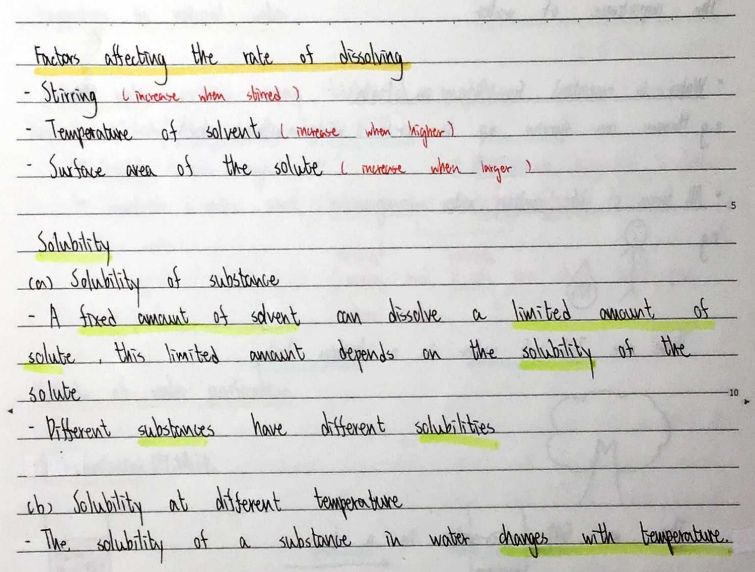 Factors affecting the rate of dissolving
- Stirring (increase when stirred)
- Temperature of solvent (increase when higher)
- Surface area of the solute (increase when larger)
5
Solubility
(a) Solubility of substance
- A fixed amount of solvent can dissolve a limited amount of
solute, this limited amount depends on the solubility of the
solute
10
- Different substances have different solubilities
(b) Solubility at different temperature
- The solubility of a substance in water changes with temperature.